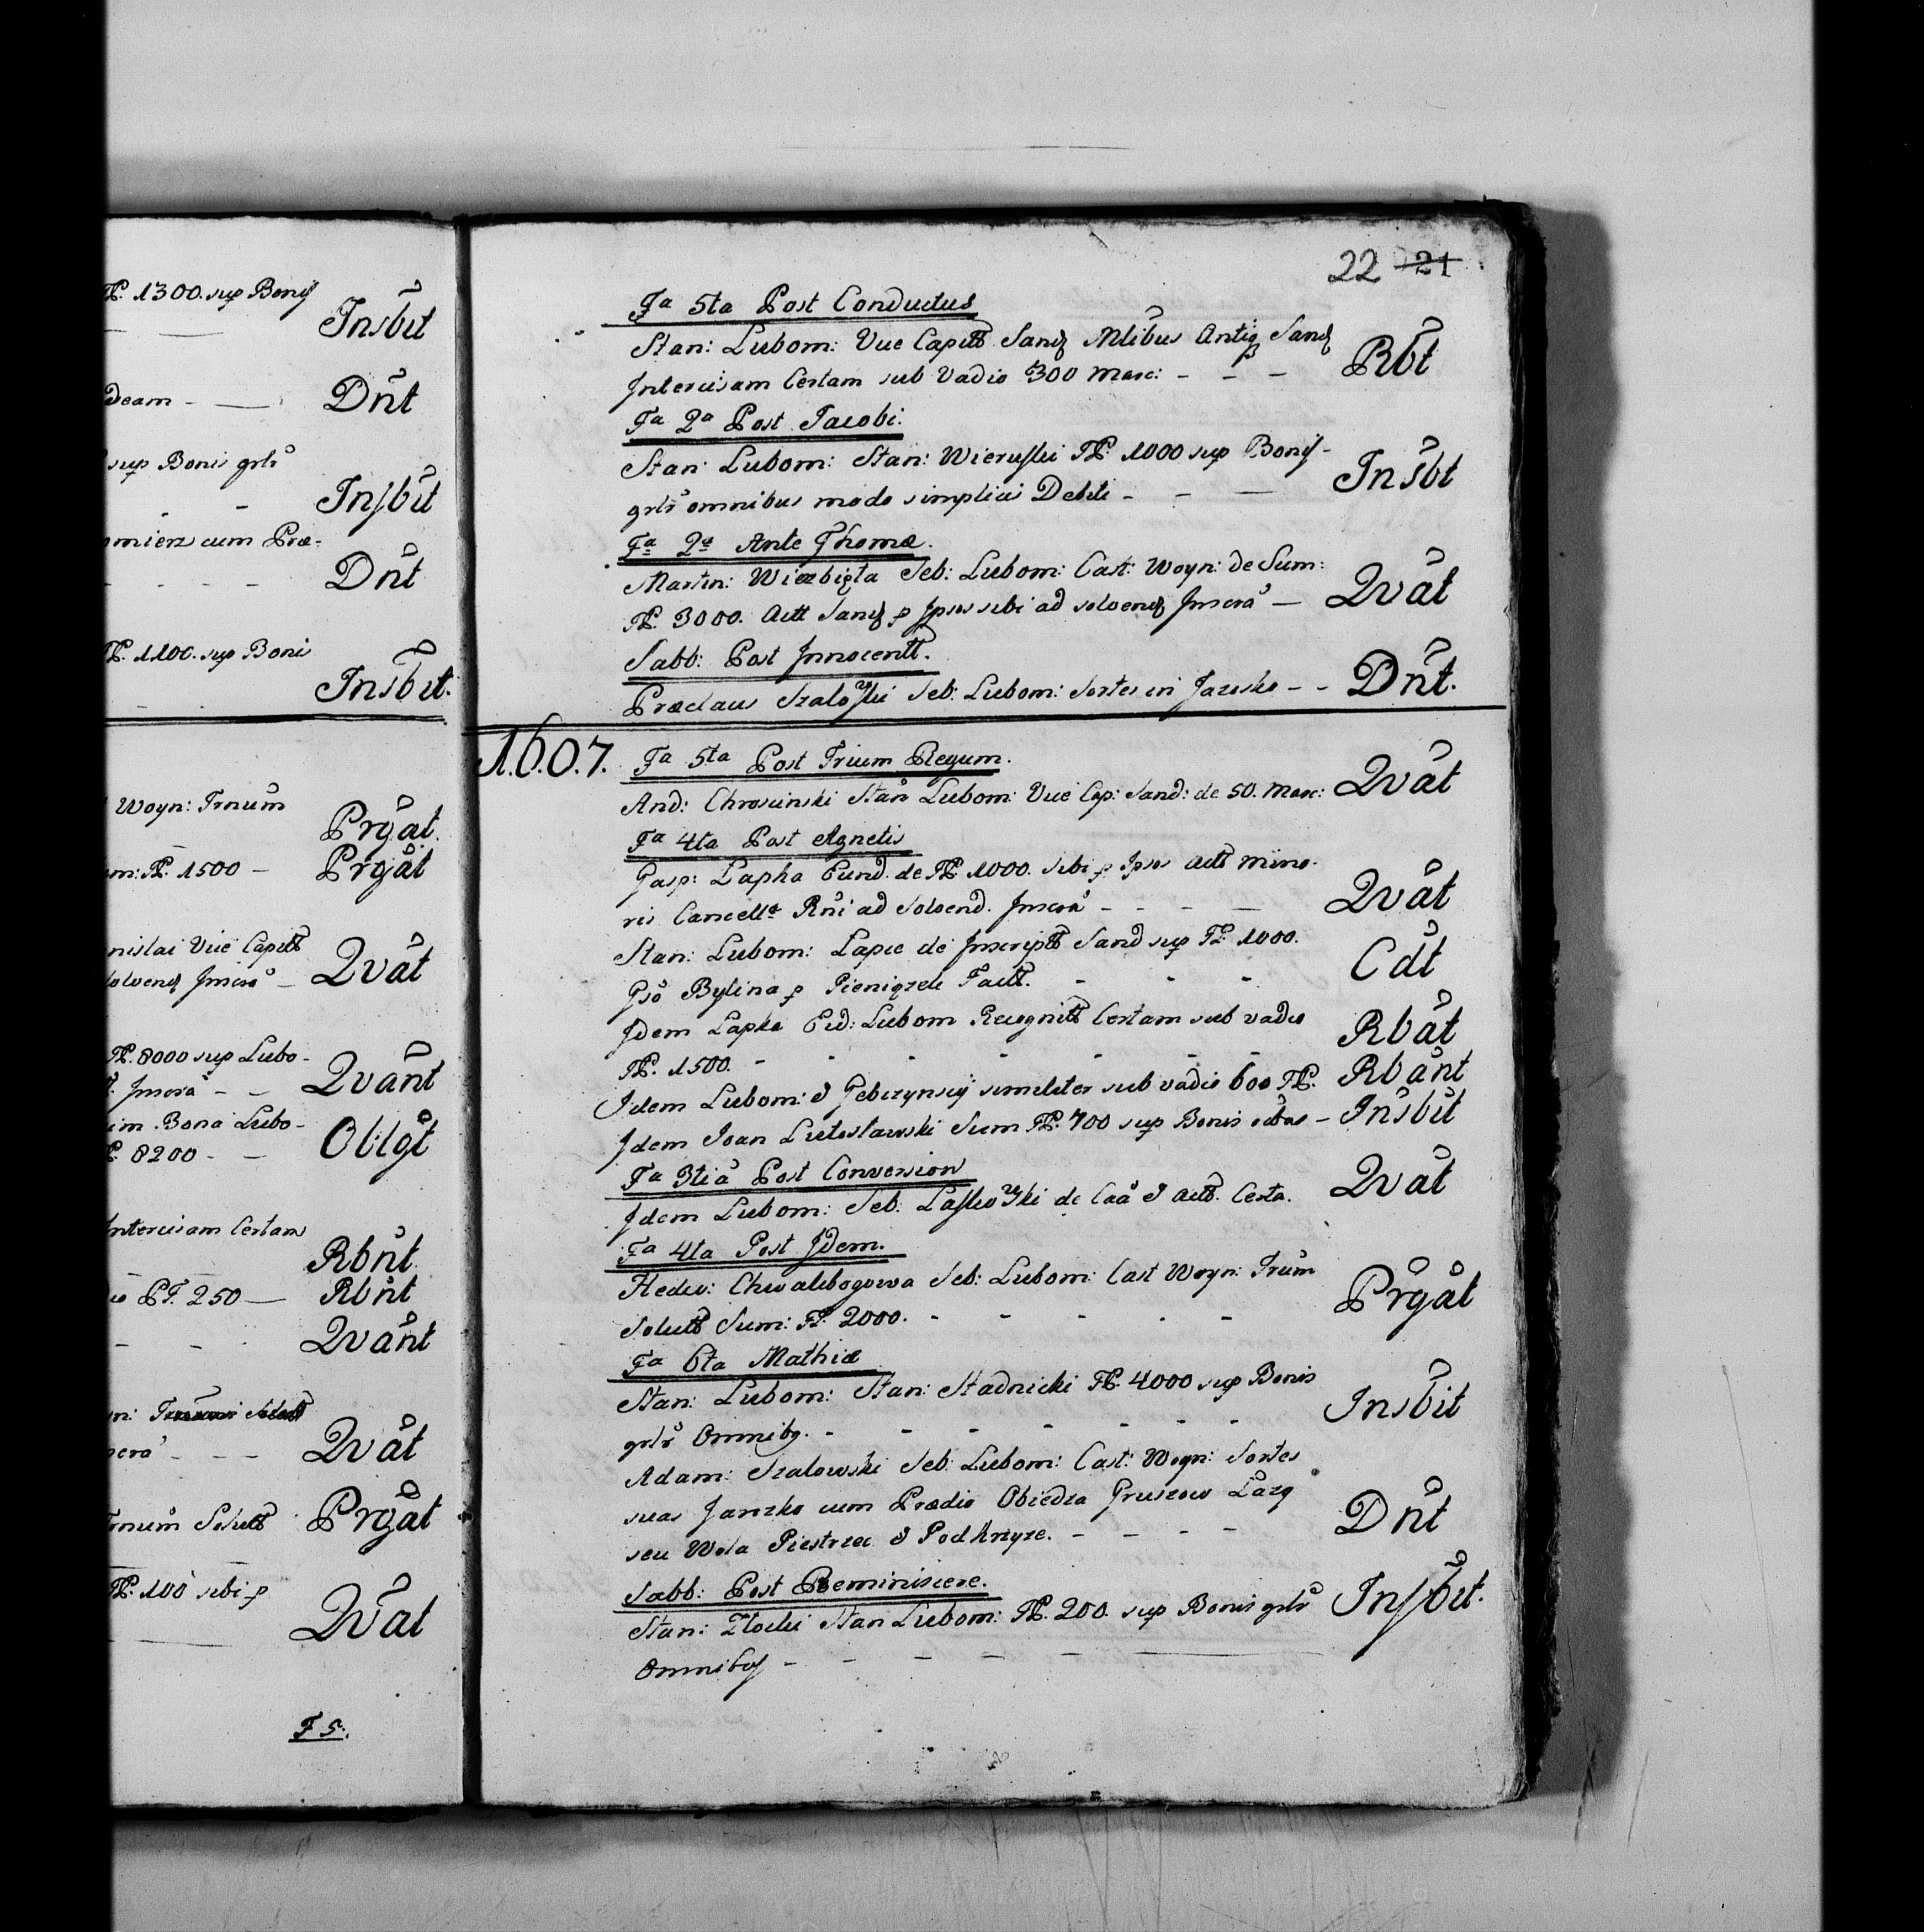 ℔. 1300. sup Bonis
Insbit
deam - — Dnt
sup Bonis grlr
Insbit
omierz cum Præ-
- - - - Dnt
℔. 1100. sup Boni
Insbit.
Woyn: Trnum
Prgat.
m: ℔. 1500 - Prgat
nislai Vice Capitt
solvend Jnscrâ - Qvat
℔. 8000 sup Lubo-
Jnscrâ - - Qvant
im Bona Lubo-
8200 - - Oblgt
Intercisam Certam
Rbnt
250 — Rbnt
- - Qvant
n:
Qvat
Trnum Solutt Prgat
℔. 100 sibi p
Qvat
F 5.
22 21
Fa 5ta Post Conductus
Stan: Lubom: Vice Capitt Sand Mlibus Antiq Sand
Intercisam Certam sub Vadio 300 Marc: - - - Rbt
Fa 2a Post Jacobi.
Stan: Lubom: Stan: Wieruski ℔. 1000 sup Bonis-
grlr omnibus modo simplicis Debiti - - — Insbt
Fa 2a Ante Thomæ.
Martin: Wierzbięta Seb: Lubom: Cast: Woyn: de Sum:
℔. 3000. Actt Sand p Ipsos sibi ad solvend Jnscrâ — Qvat
Sabb: Post Jnnocentt.
Præclaus Szalowski Seb: Lubom: Sortes in Jazesko - - Dnt.
1.6.0.7. Fa 5ta Post Trium Regum.
And: Chrosinski Stan Lubom: Vice Cap: Sand: de 50. Marc: Qvat
Fa 4ta Post Agnetis
Gasp: Lapka Eund. de ℔. 1000. sibi p Ipsos Actt Mino-
ris Cancella Rni ad Solvend. Jnscrâ - - - — Qvat
Stan: Lubom: Lapce de Jnscriptt Sand sup ℔. 1000.
Gsô Bylina p Pieniązek Factt. - - - Cdt
Jdem Lapka Eid: Lubom Recognitt Certam sub vadio
℔. 1500. - - - - - - Rbat
Idem Lubom: & Gebczynscij similiter sub vadio 600 ℔. Rbant
Jdem Ioan Lutoslawski Sum ℔. 700 sup Bonis oibus - Insbit
Fa 3tia Post Conversion
Jdem Lubom: Seb: Laskowski de Caâ & Actt. Certa. Qvat
Fa 4ta Post Jdem.
Hedw: Chwalibogowa Seb: Lubom: Cast Woyn: Trum
Solutt Sum: ℔. 2000. - - - - - Prgat
Fa 6ta Mathiæ
Stan: Lubom: Stan: Stadnicki ℔. 4000 sup Bonis
grlr Omnibq. - - - - - - Insbit
Adam: Szalowski Seb: Lubom: Cast: Woyn: Sortes
suas Jarozko cum Prædio Obiedza Gruszow Lazy
seu Wola Piestrzec & Podkrzyze. - - - - Dnt
Sabb: Post Reminiscere.
Stan: Zlocki Stan Lubom: ℔. 200. sup Bonis grlr Insbit.
Omnibq - - - - - —